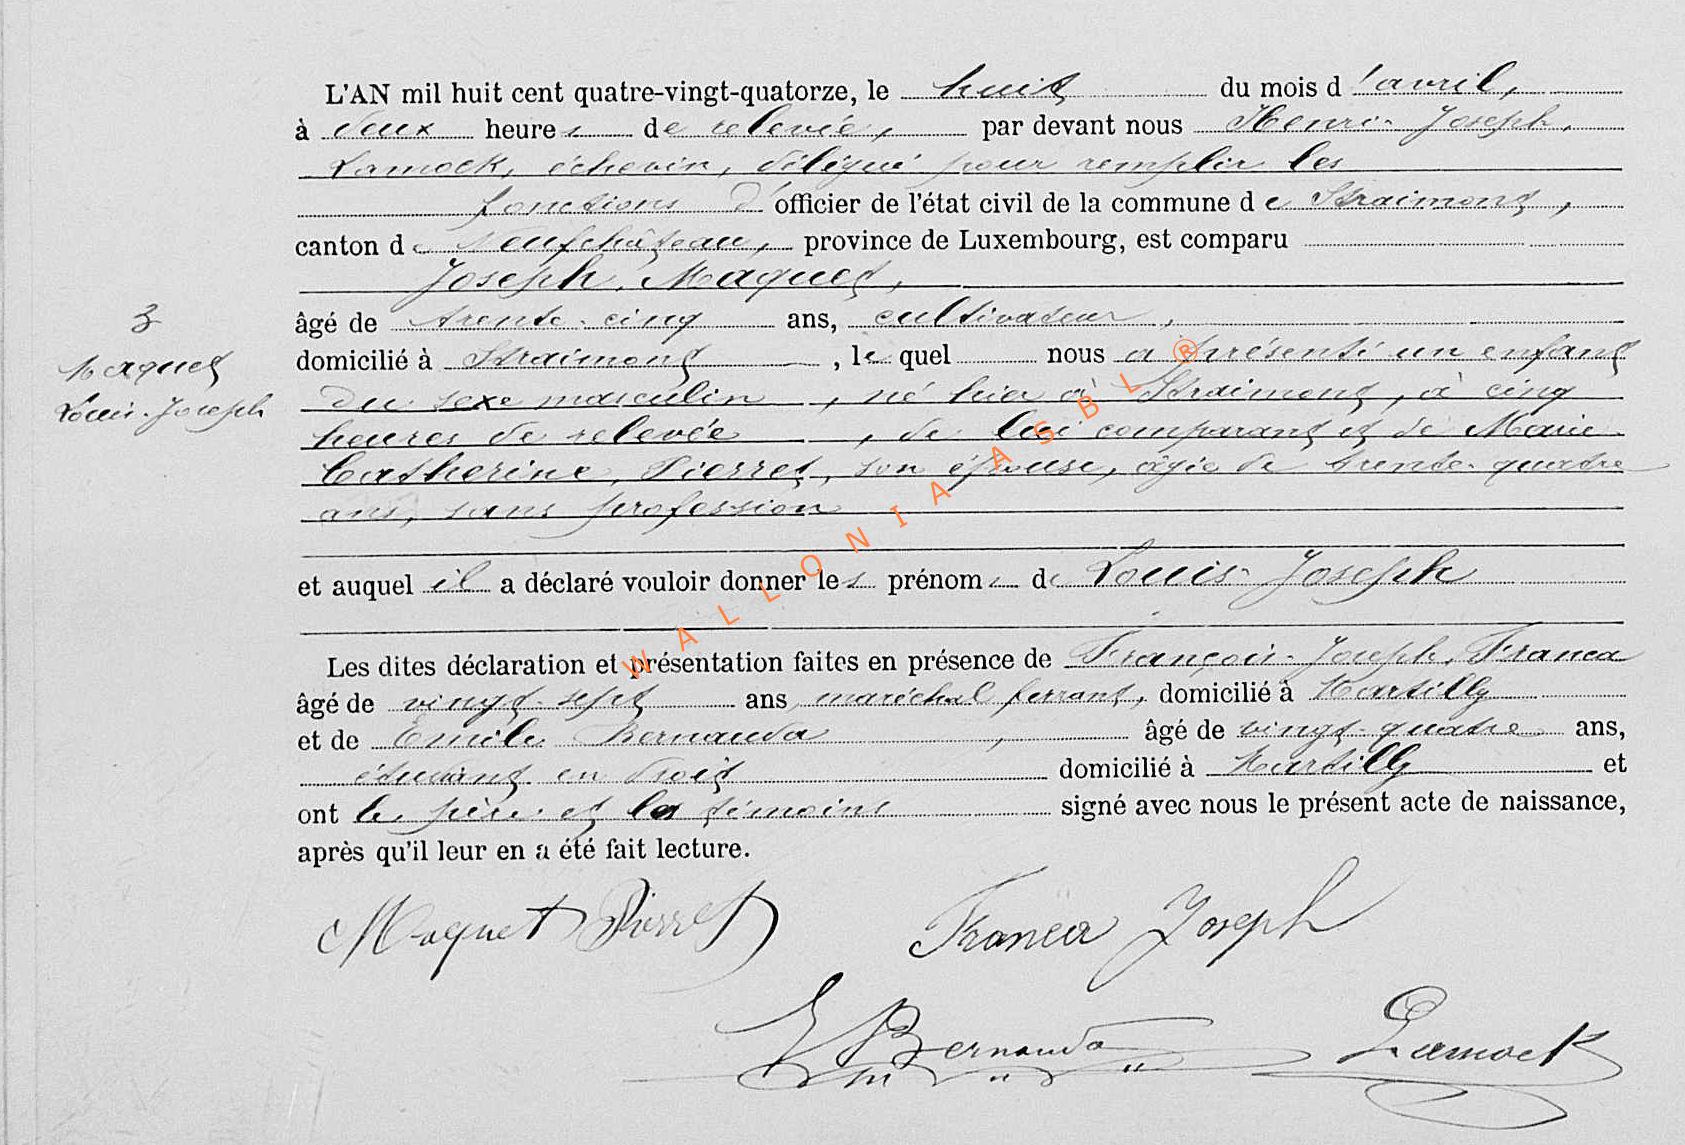 L'AN mil huit cent quatre-vingt-quatorze, le huit du mois d'avril,
à deux heures de relevée, par devant nous Henri-Joseph
Lamock, échevin, délégué pour remplir les
fonctions d'officier de l'état civil de la commune de Straimont,
canton de Neufchâteau, province de Luxembourg, est comparu
Joseph Maquet,
âgé de trente-cinq ans, cultivateur,
domicilié à Straimont, lequel nous a présenté un enfant
du sexe masculin, né hier à Straimont, à cinq
heures de relevée, de lui comparant et de Marie
Catherine Pierret, son épouse, âgée de trente-quatre
ans, sans profession
et auquel il a déclaré vouloir donner les prénoms de Louis-Joseph
Les dites déclaration et présentation faites en présence de François-Joseph Franca
âgé de vingt-sept ans maréchal ferrant, domicilié à Martilly
et de Emile Bernauda, âgé de vingt-quatre ans,
étudiant en droit domicilié à Martilly et
ont le père et les témoins signé avec nous le présent acte de naissance,
après qu'il leur en a été fait lecture.
3
Maquet
Louis-Joseph
Maquet Pierret
Joseph
E Bernauda
Lamock
WALLONIA ASBL ®